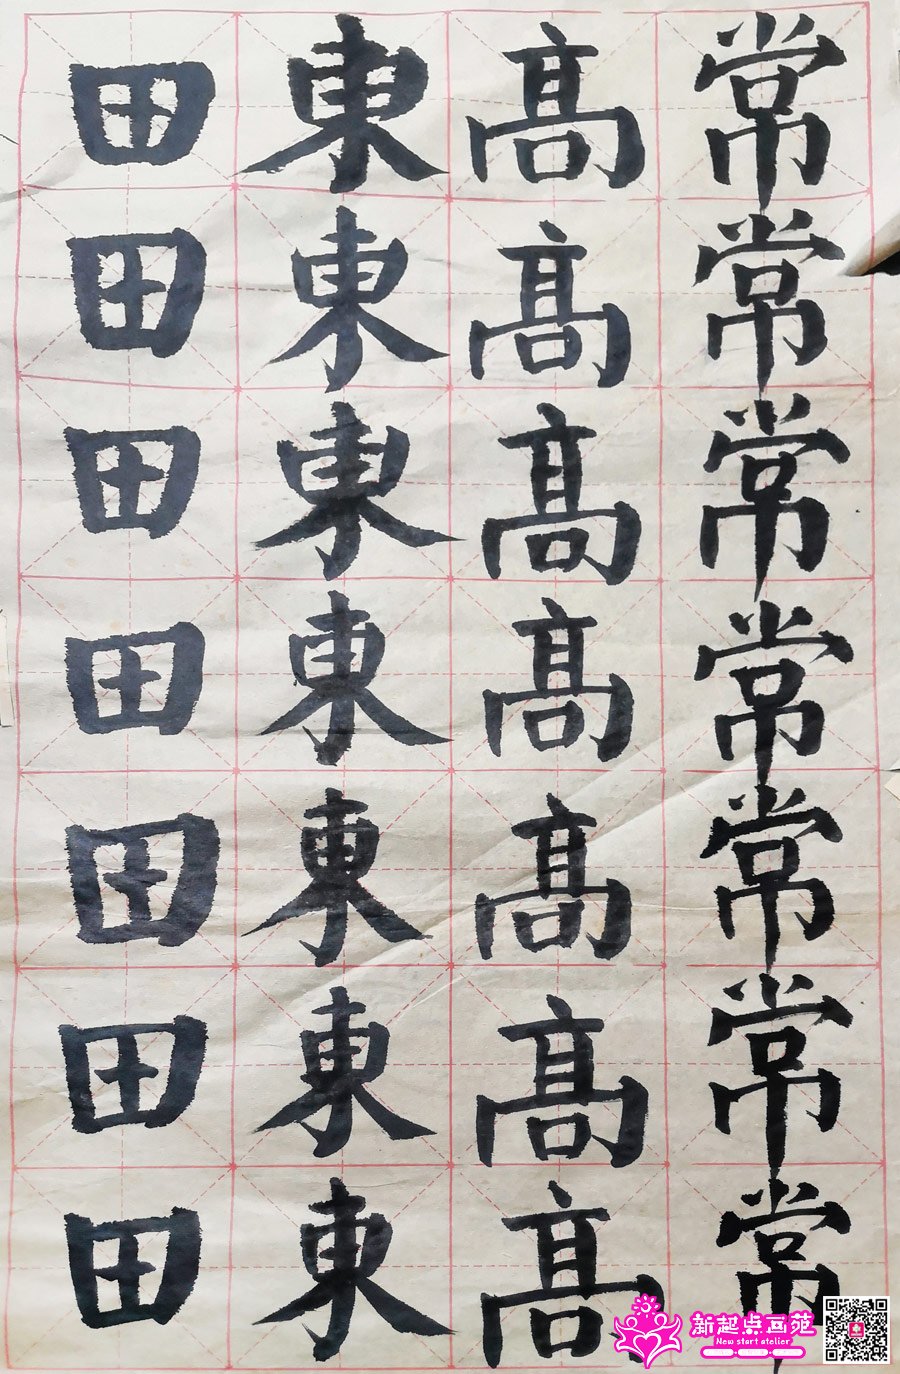 常常常常常常常
髙髙髙髙髙髙髙
東東東東東東東
田田田田田田田
新起点画苑
New start atelier